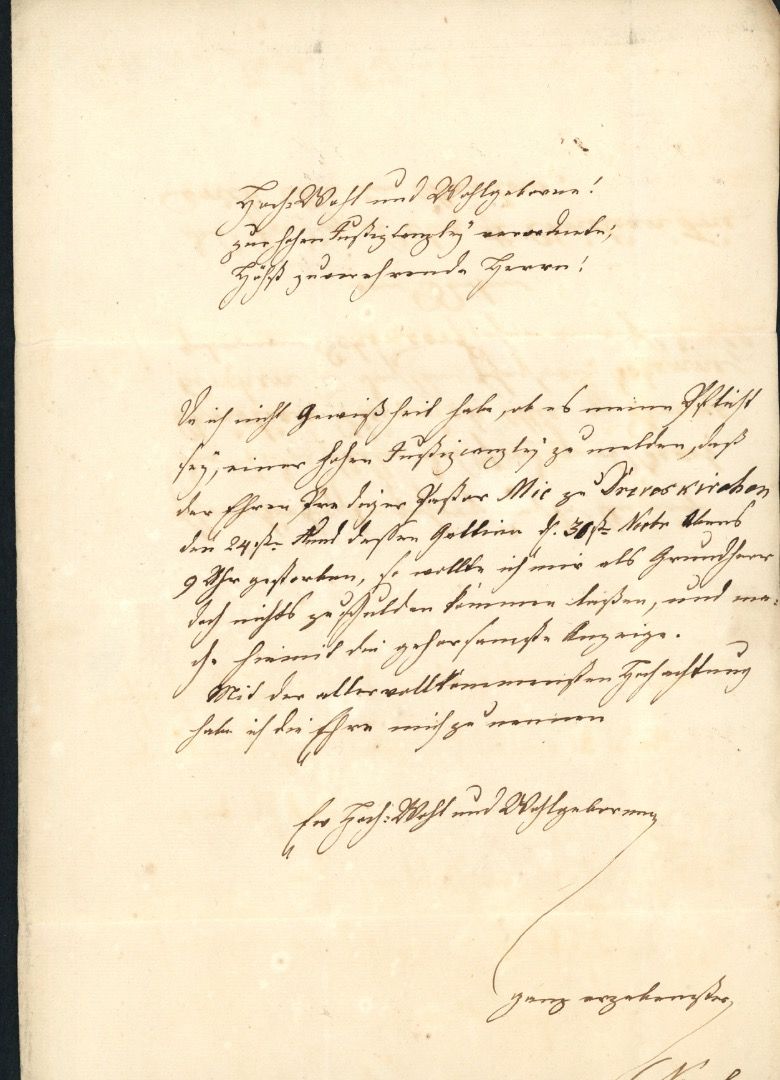 Hoch: Wohl und Wohlgeborne!
zur hohen Justizcanzley verordnete,
Höchst zuverehrende Herrn!
Da ich nicht Gewißheit habe, ob es meine Pflicht
sey, einer hohen Justizcanzley zu melden, daß
der Ehren Prediger Pastor Mie zu Dreveskirchen
den 24st. und dessen Gattinn d. 30st. Novbr Abens
9 Uhr gestorben, so wollte ich mir als Grundherr
doch nichts zu Schulden kommen laßen, und ma:
che hiemit die gehorsamste Anzeige.
Mit der allervollkommensten Hochachtung
habe ich die Ehre mich zu nennen
Ew Hoch: Wohl und Wohlgeboren
ganz ergebenster